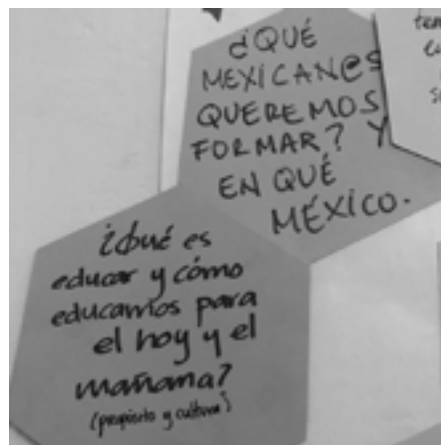 ¿QUÉ
MEXICAN@S
QUEREMOS
FORMAR? Y
EN QUÉ
MÉXICO.
¿Qué es
educar y cómo
educamos para
el hoy y el
mañana?
(propósito y cultura)